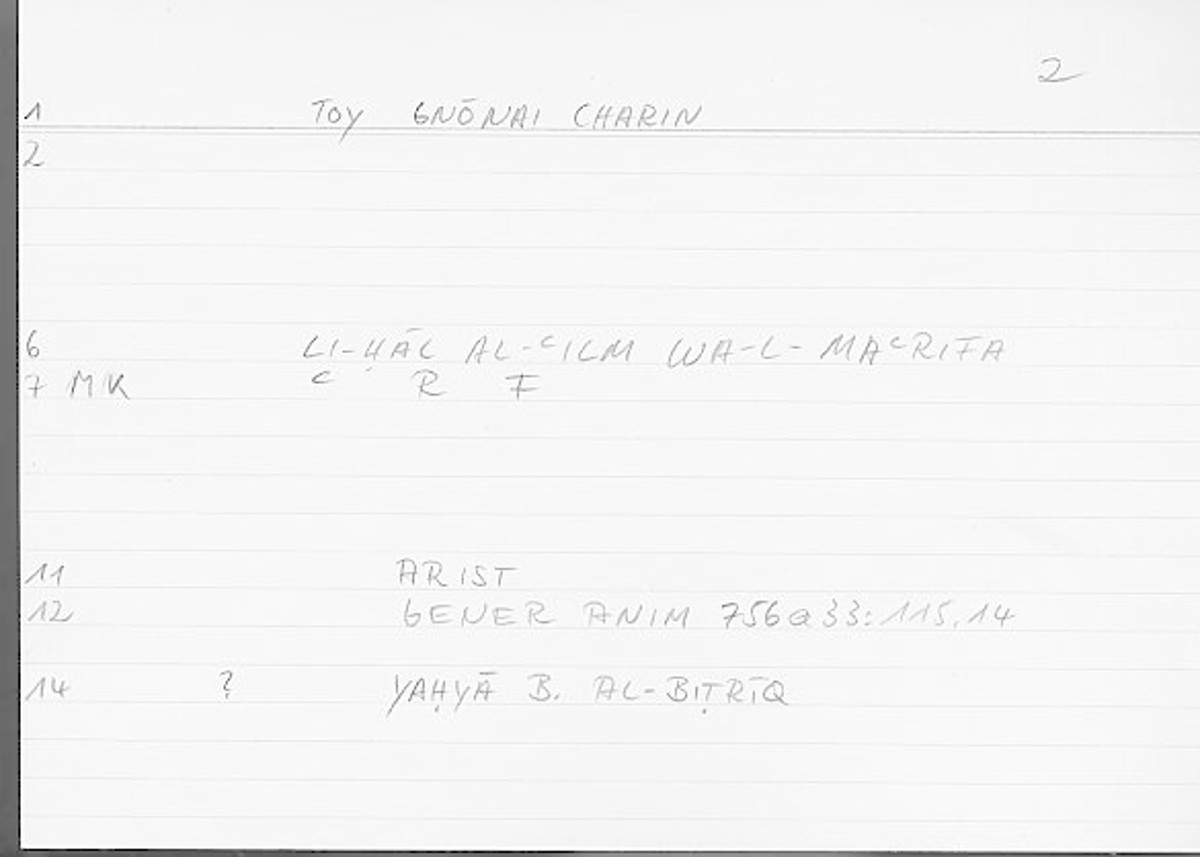 2
1 TOY GNŌNAI CHARIN
2
6 LI-ḤĀL AL-ᶜILM WA-L-MAᶜRIFA
7 MK ᶜ R F
11 ARIST
12 GENER ANIM 756a33:115,14
14 ? YAḤYĀ B. AL-BIṬRĪQ